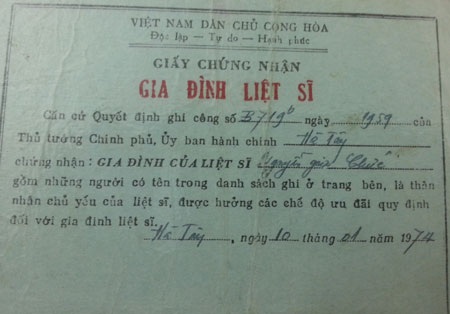 VIỆT NAM DÂN CHỦ CỘNG HÒA
Độc lập — Tự do — Hạnh phúc
GIẤY CHỨNG NHẬN
GIA ĐÌNH LIỆT SĨ
Căn cứ Quyết định ghi công số B719b ngày 1969 của
Thủ tướng Chính phủ, Ủy ban hành chính Hà Tây
chứng nhận: GIA ĐÌNH CỦA LIỆT SĨ Nguyễn Chức
gồm những người có tên trong danh sách ghi ở trang bên, là thân
nhân chủ yếu của liệt sĩ, được hưởng các chế độ ưu đãi quy định
đối với gia đình liệt sĩ.
Hà Tây, ngày 10 tháng 01 năm 1974